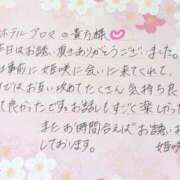 ホテルプロマの貴方様
本日はお誘い頂きありがとうございました。
は事前に姫咲に会いに来てくれて、
ではお互い攻めてたくさん気持ち良
て良かったです。お話しもすごく楽しかった
またお時間合えばお誘いお
しております。 姫咲